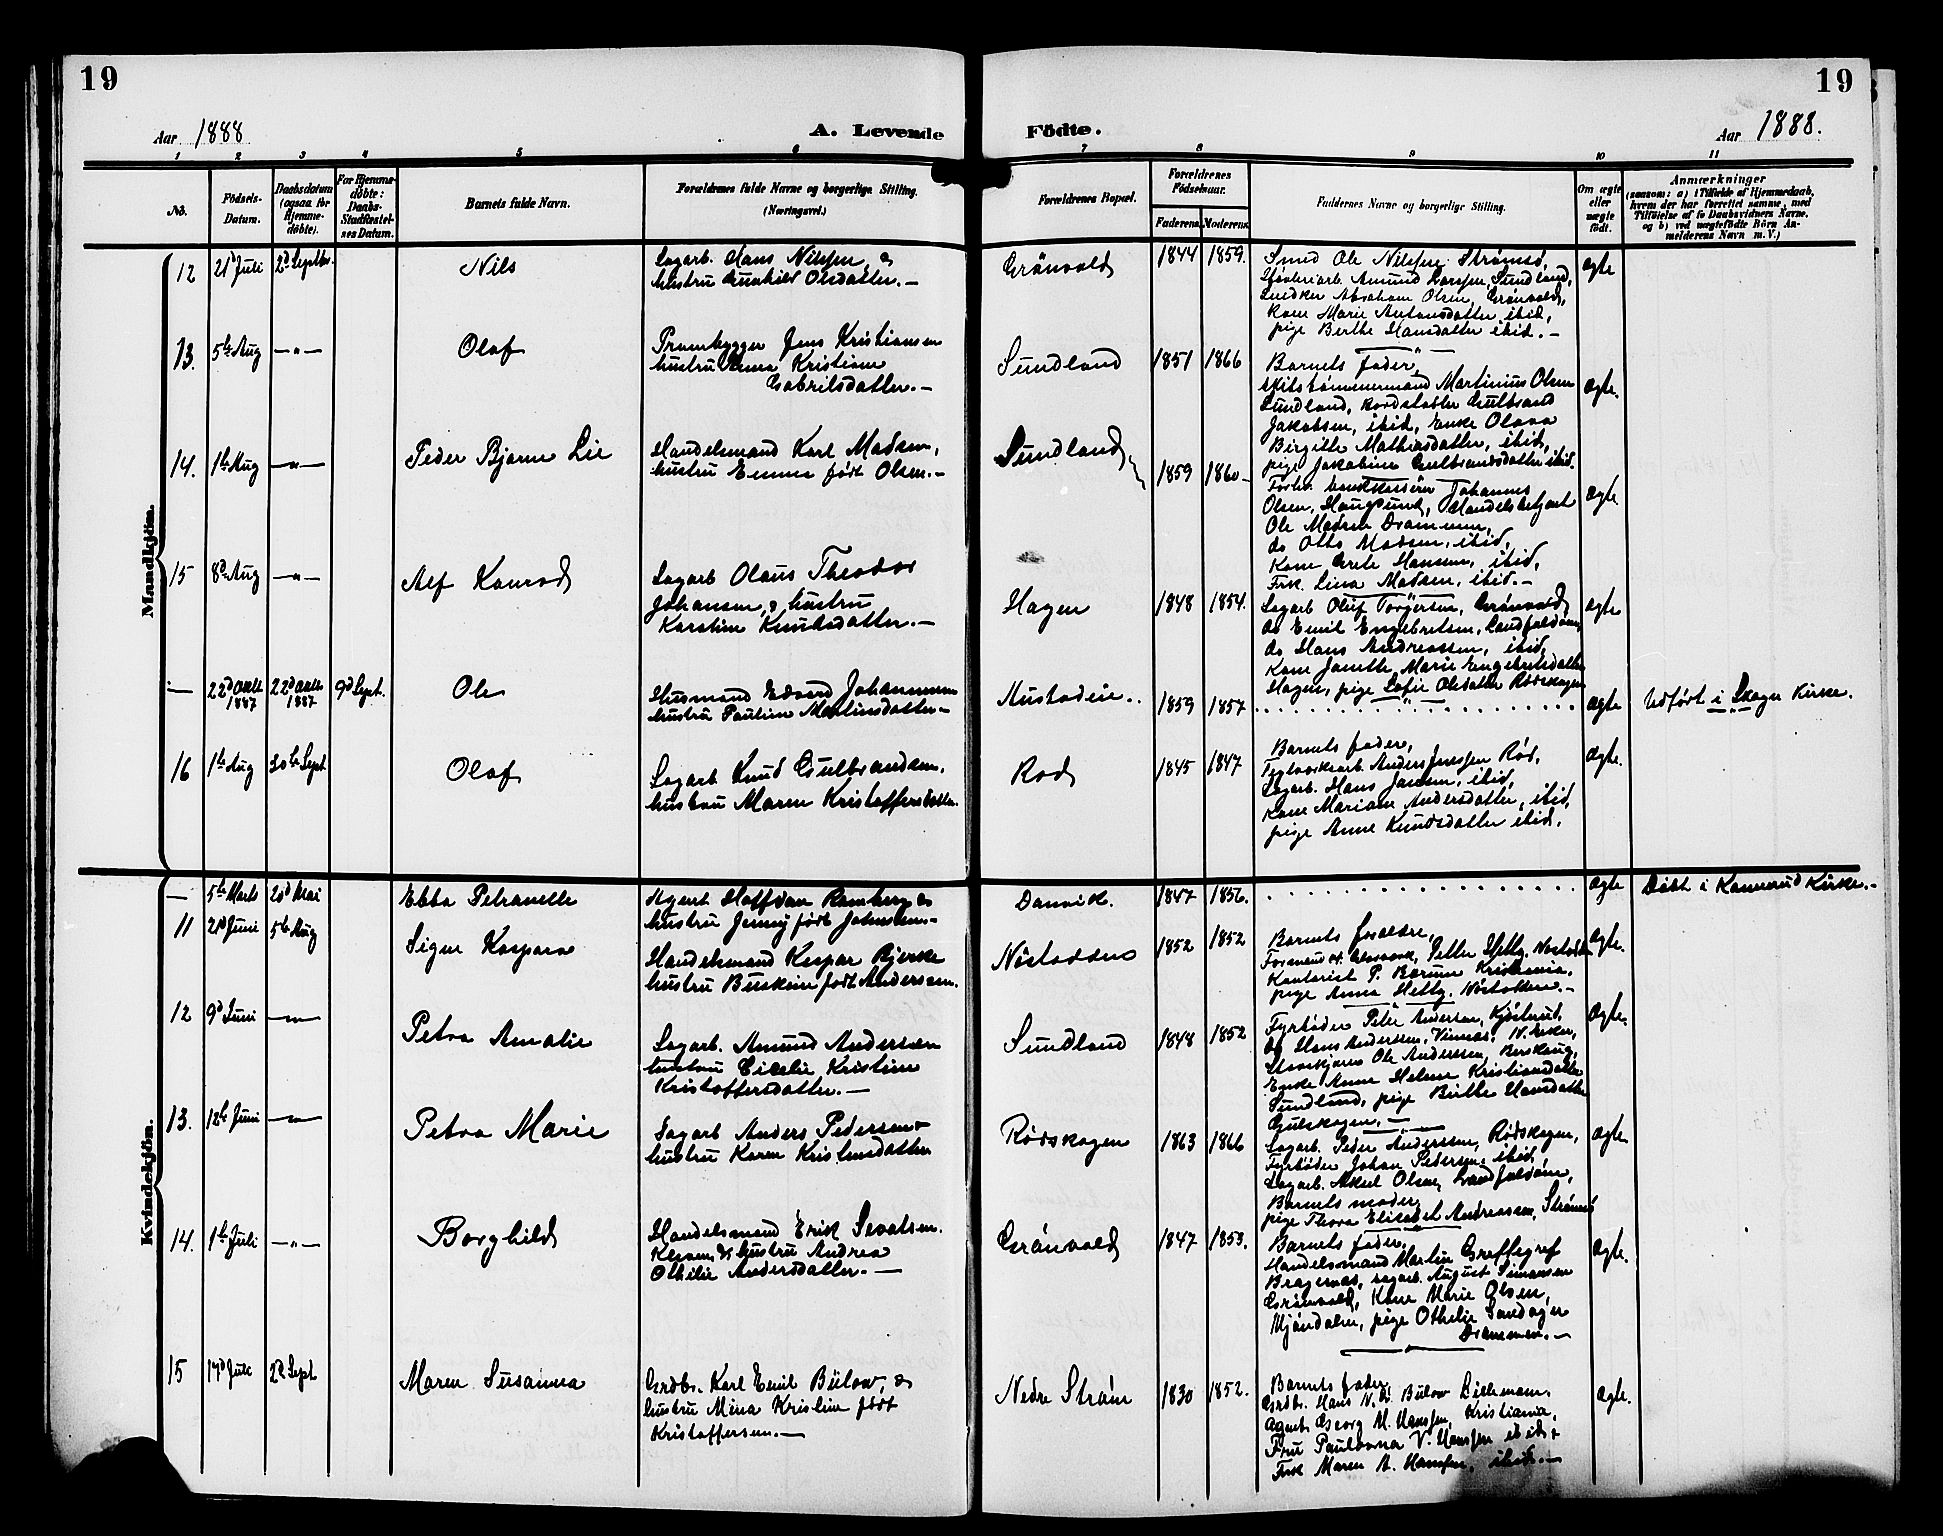 19
19
Aar 1888
A. Levende
Fødte.
Aar 1888.
1 2 3 4 5 6 7 8 9 10 11
No.
Fødsels-
Datum.
Daabsdatum
(ogsaa for
Hjemme-
døbte).
For Hjemme-
døbte:
Daabs-
Stadfæstel-
ses Datum.
Barnets fulde Navn.
Forældrenes fulde Navne og borgerlige Stilling.
(Næringsvei.)
Forældrenes Bopæl.
Forældrenes
Fødselsaar.
Faderens. Moderens.
Faddernes Navne og borgerlige Stilling.
Om ægte
eller
uægte
født.
Anmærkninger
(saasom: a) i Tilfælde af Hjemmedaab,
hvem der har forrettet samme, med
Tilføielse af to Daabsvidners Navne,
og b) ved uægtefødte Børn An-
melderens Navn m. V.)
Mandkjøn.
12 21d Juli 2d Septbr.
Nils
Sagarb. Hans Nilssen &
hustru Gunhild Olsdatter. —
Grønvold
1844 1859.
Smed Ole Nilssen Strømsø,
Amund Larssen, Sundland,
Snedker Abraham Olsen, Grønvold,
Kone Marie Antonsdatter ibid,
pige Berthe Hansdatter ibid. —
ægte
13. 5te Aug — " —
Olaf
Prambygger Jens Kristiansen
hustru Anna Kristiane
Gabrilsdatter. —
Sundland
1851 1866
Barnets fader,
Martinius Olsen
Sundland, Bordstabler Gulbrand
Jakobsen, ibid, Enke Olava
Birgitte Mathiasdatter, ibid,
pige Jakobine Gulbrandsdatter ibid.
ægte.
14. 1ste Aug — " —
Peder Bjarne Lie
Handelsmand Karl Madsen,
hustru Emma født Olsen. —
Sundland
1859 1860 —
Johannes
Olsen, Haugsund, Handelsbetjent
Ole Madsen Drammen,
do Otto Madsen, ibid,
Kone Grete Hansen, ibid,
Frk. Lina Madsen, ibid. —
ægte
15 8d Aug — " —
Alf Konrad
Sagarb Olaus Theodor
Johansen, & hustru
Karoline Knudsdatter. —
Hagen
1848 1854.
Sagarb Oluf Torgersen, Grønvold
do Emil Engebretsen, Landfaldøen,
do Hans Andreassen, ibid,
Kone Janette Marie Engebretsdatter
Hagen, pige Sofie Olsdatter Rødskogen
ægte
— 22d Octb 1887 22d Octb 1887 9d Sept.
Ole
Husmand Edvard Johannesen
hustru Pauline Martinsdatter —
Mustadeie..
1859 1857
ægte
Udført i Skoger Kirke.
16 1ste Aug 30te Sept
Olaf
Sagarb Knud Gulbrandsen,
hustru Maren Kristoffersdatter.
Rød
1845 1847
Barnets fader,
Teglværksarb. Anders Jenssen Rød,
Sagarb. Hans Jansen, ibid,
Kone Mariane Andersdatter, ibid,
pige Anne Knudsdatter ibid.
ægte.
Kvindekjøn.
— 5te Marts 20d Mai
Ebba Petronelle
Agent Halfdan Ramberg &
hustru Jenny født Johnsen —
Danvik.
1847 1856.
ægte
Døbt i Konnerud Kirke. —
11 2d Juni 5te Aug
Signe Kaspara
Handelsmand Kaspar Bjerke
hustru født Andersen.
Nøstodden
1852 1852
Barnets forældre,
Petter Hetty, Nøstodden
Kontorist P. Borum Kristiania,
pige Anna Hetty, Nøstodden. —
ægte.
12 9d Juni — " —
Petra Amalie
Sagarb. Amund Andersen
hustru Cicelie Kristine
Kristoffersdatter. —
Sundland
1848 1852
Fyrbøder Peter Andersen, Kjøsterud,
do Hans Andersen, Vinnes, N. Eker,
Ole Andersen, Berskaug,
Enke Anne Helene Kristiansdatter
Sundland, pige Birthe Hansdatter
Gulskogen. —
ægte.
13. 12te Juni — " —
Petra Marie
Sagarb Anders Pedersen &
hustru Karen Kristensdatter
Rødskogen
1863 1866
Sagarb. Peder Andersen, Rødskogen,
Fyrbøder Johan Pedersen, ibid,
Sagarb. Aksel Olsen, Landfaldøen,
Barnets moder,
pige Thora Elisabet Andreassen, Strømsø
ægte
14. 1ste Juli — " —
Borghild
Handelsmand Erik
hustru Andrea
Othilie Andersdatter. —
Grønvold
1847 1853.
Barnets fader,
Handelsmand Martin Greffsgref
Bragernæs, sagarb. August Simonsen
Grønvold, Kone Marie Olsen,
Mjøndalen, pige Othilie Sandager
Drammen. —
ægte.
15 17d Juli 2d Sept
Maren Susanna
Grdbr. Karl Emil Bülow, &
hustru Mina Kristine født
Kristoffersen. —
Nedre Strøm
1830 1852.
Barnets fader,
Grdbr. Hans N. W. Bülow
Agent Georg M. Hanssen, Kristiania,
Fru Paulowna V. Hanssen ibid,
Frk Maren A. Hanssen, ibid. —
ægte.